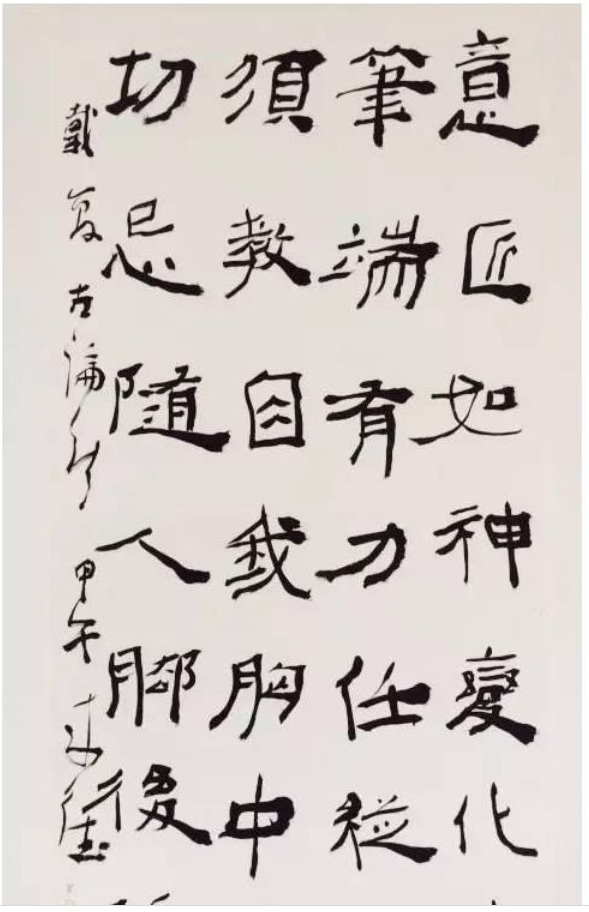 意匠如神變化
筆端有力任從
須教自我胸中
切忌隨人腳後
戴復古論詩 甲午 未